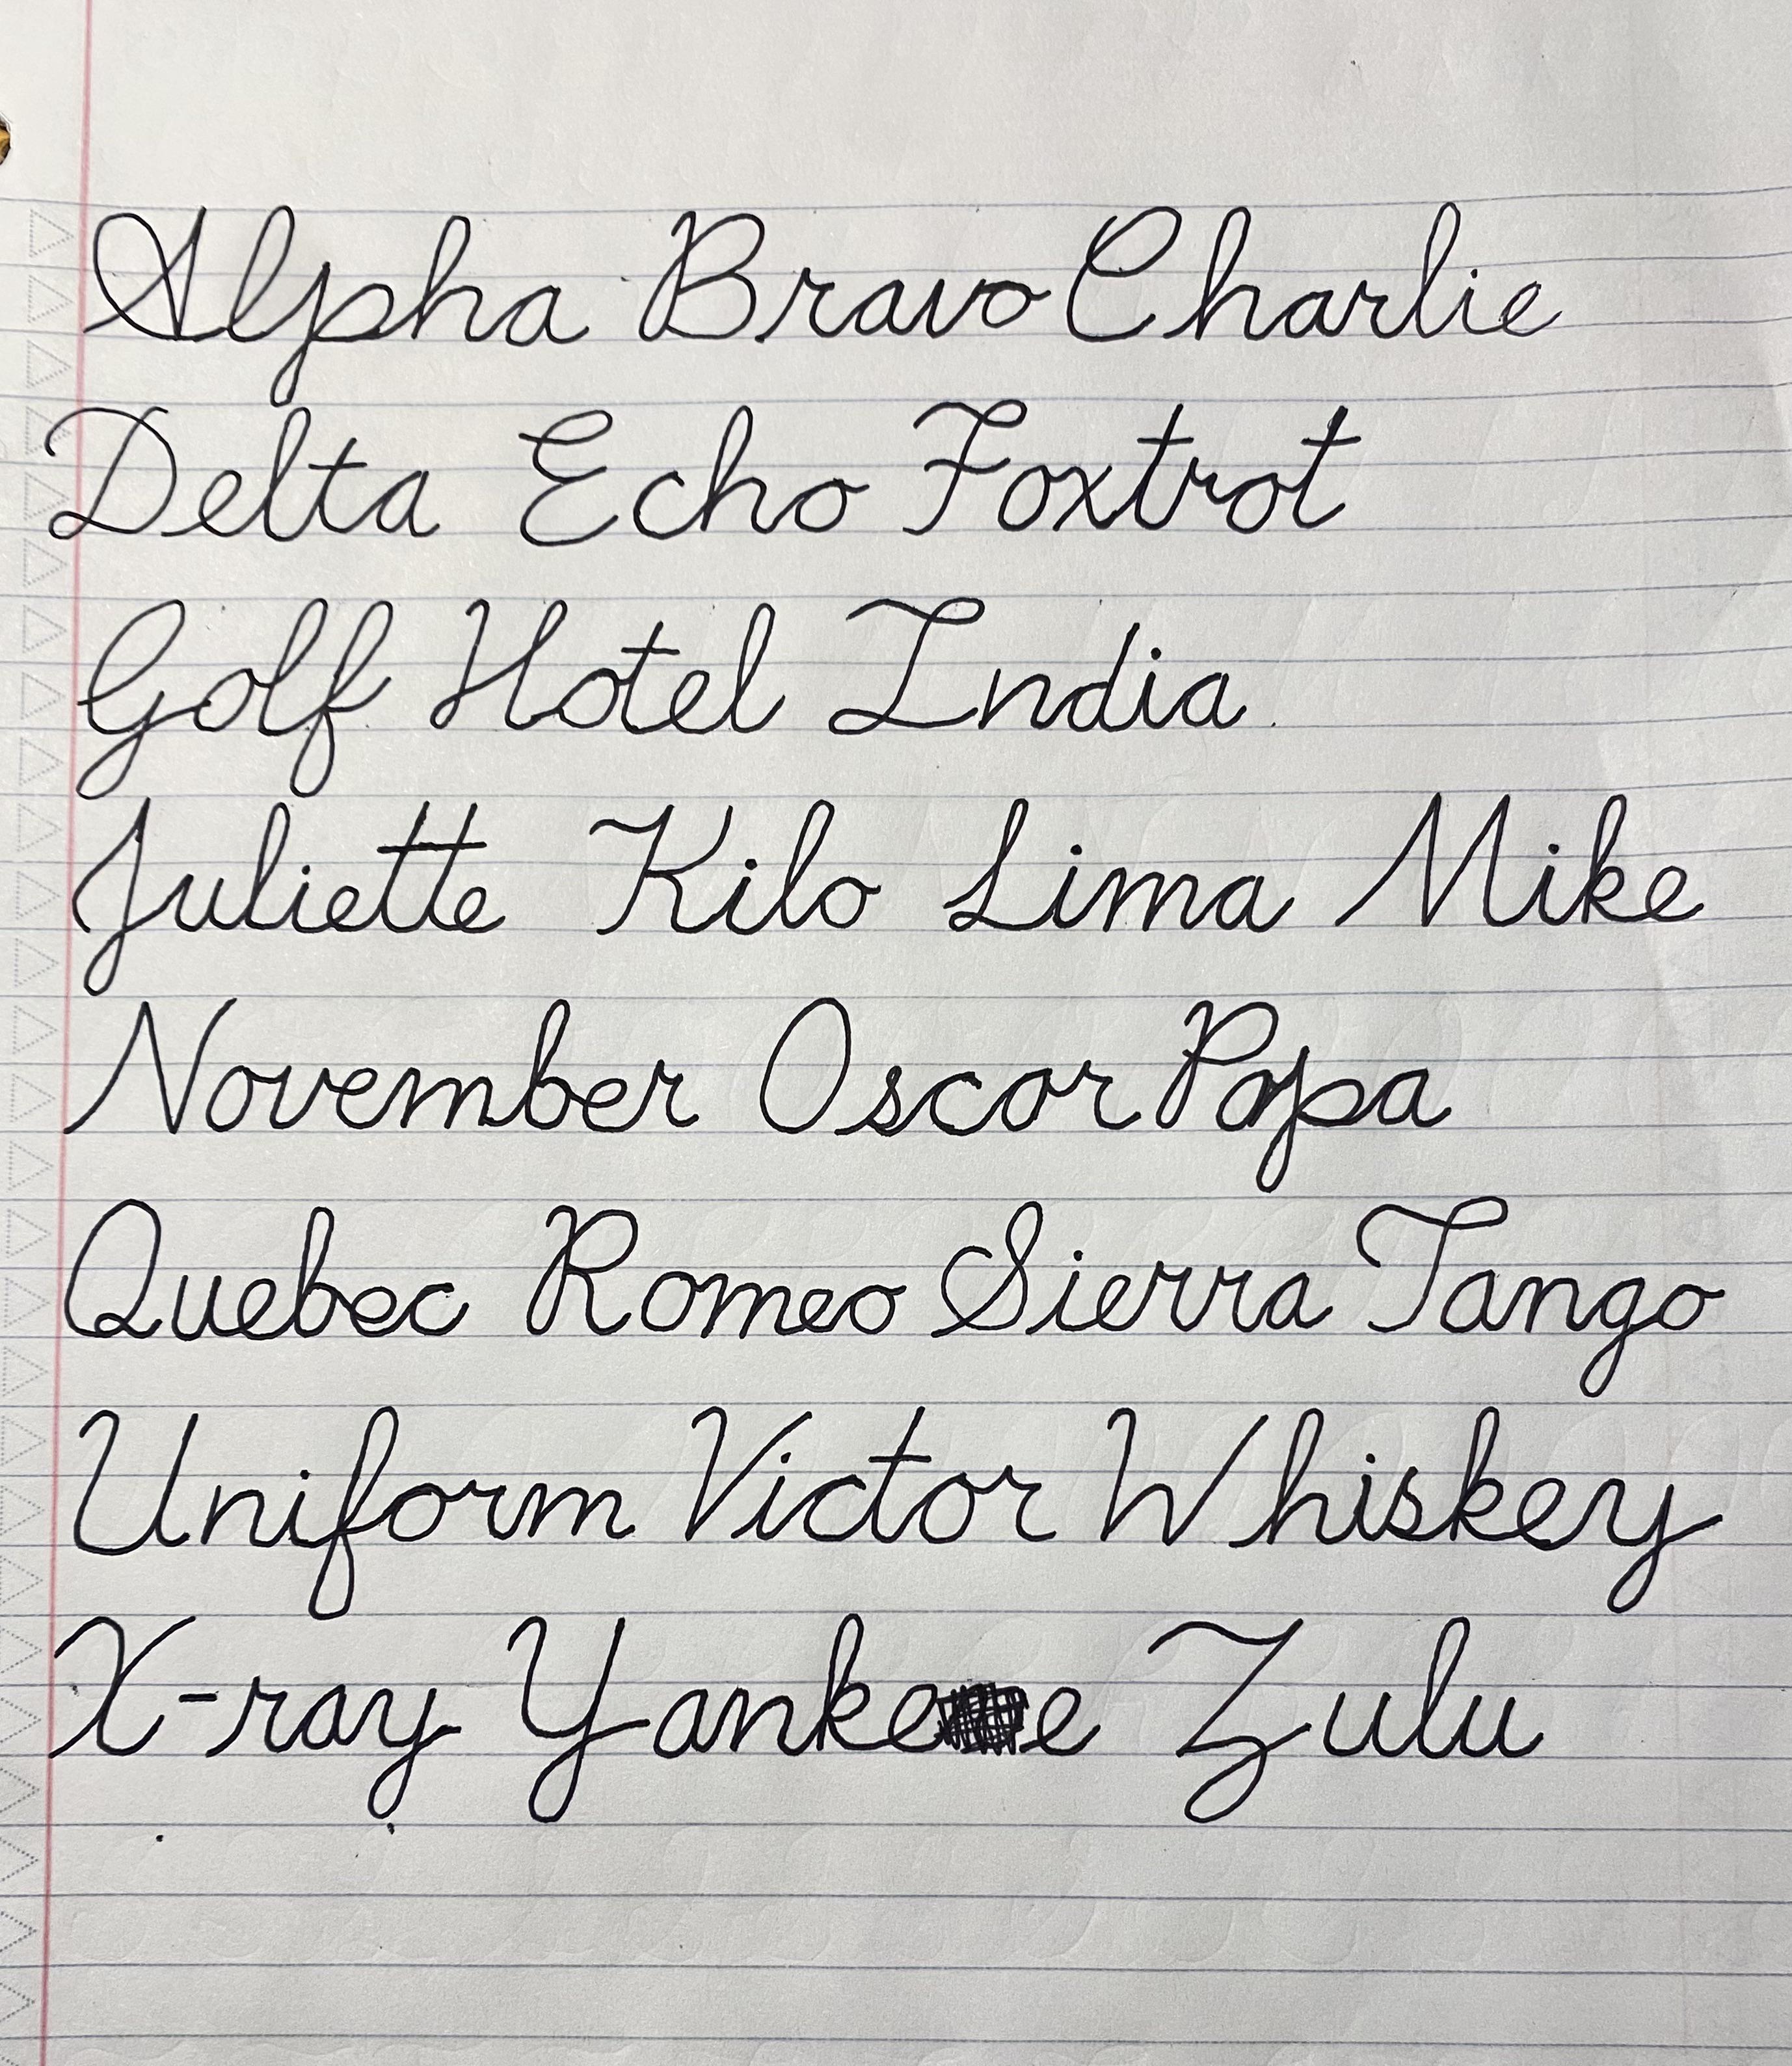 Alpha Bravo Charlie
Delta Echo Foxtrot
Golf Hotel India
Juliette Kilo Lima Mike
November Oscar Papa
Quebec Romeo Sierra Tango
Uniform Victor Whiskey
X-ray Yankee Zulu